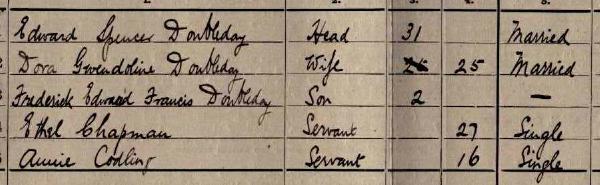 Edward Spencer Doubleday Head 31 Married
Dora Gwendoline Doubleday Wife 25 Married
Frederick Edward Francis Doubleday Son 2 —
Ethel Chapman Servant 27 Single
Annie Codling Servant 16 Single